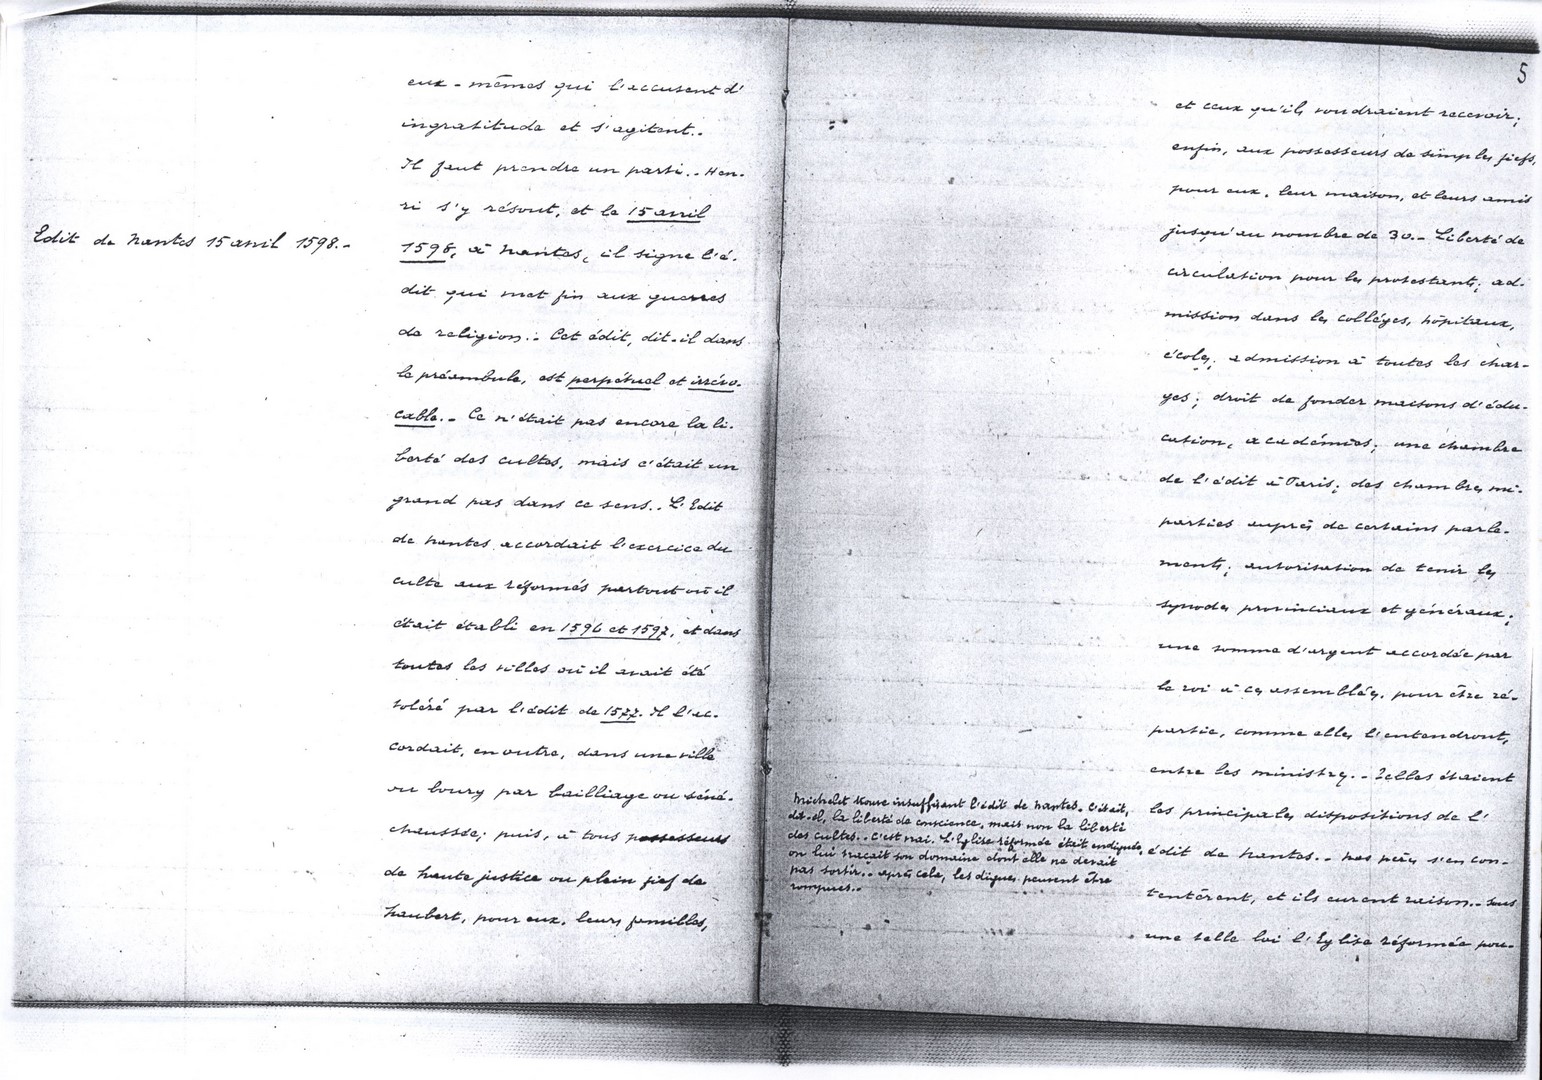 eux-mêmes qui l'accusent d'
ingratitude et s'agitent.-
Il faut prendre un parti.- Hen-
ri s'y résout, et le 15 avril
Edit de Nantes 15 avril 1598.-
1598, à Nantes, il signe l'é-
dit qui met fin aux guerres
de religion.- Cet édit, dit-il dans
le préambule, est perpétuel et irrévo-
cable.- Ce n'était pas encore la li-
berté des cultes, mais c'était un
grand pas dans ce sens.- L'Edit
de Nantes accordait l'exercice du
culte aux réformés partout où il
était établi en 1596 et 1597, et dans
toutes les villes où il avait été
toléré par l'édit de 1577. Il l'ac-
cordait, en outre, dans une ville
ou bourg par bailliage ou séné-
chaussée; puis, à tous possesseurs
de haute justice ou plein fief de
haubert, pour eux, leurs familles,
5
et ceux qu'ils voudraient recevoir;
enfin, aux possesseurs de simples fiefs,
pour eux, leur maison, et leurs amis
jusqu'au nombre de 30.- Liberté de
circulation pour les protestants; ad-
mission dans les collèges, hôpitaux,
écoles; admission à toutes les char-
ges; droit de fonder maisons d'édu-
cation, académies; une chambre
de l'édit à Paris; des chambres mi-
parties auprès de certains parle-
ments; autorisation de tenir les
synodes provinciaux et généraux;
une somme d'argent accordée par
le roi à ces assemblées, pour être ré-
partie, comme elles l'entendront,
entre les ministres.- Telles étaient
les principales dispositions de l'
édit de Nantes.- Nos pères s'en con-
tentèrent, et ils eurent raison.- Sous
une telle loi l'Eglise réformée pou-
Michelet trouve insuffisant l'édit de Nantes. C'était,
dit-il, la liberté de conscience, mais non la liberté
des cultes.- C'est vrai. L'Eglise réformée était endiguée,
on lui traçait son domaine dont elle ne devait
pas sortir.- Après cela, les digues peuvent être
rompues.-